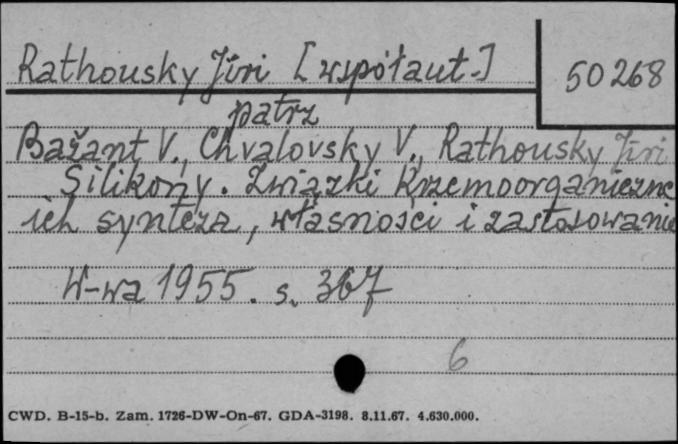 Rathousky Jiri [współaut.]
50268
patrz
Bažant V., Chvalovsky V., Rathousky Jiri
Silikony. Związki krzemoorganiczne
ich synteza, własności i zastosowanie
W-wa 1955. s. 367
6
CWD. B-15-b. Zam. 1726-DW-On-67. GDA-3198. 8.11.67. 4.630.000.